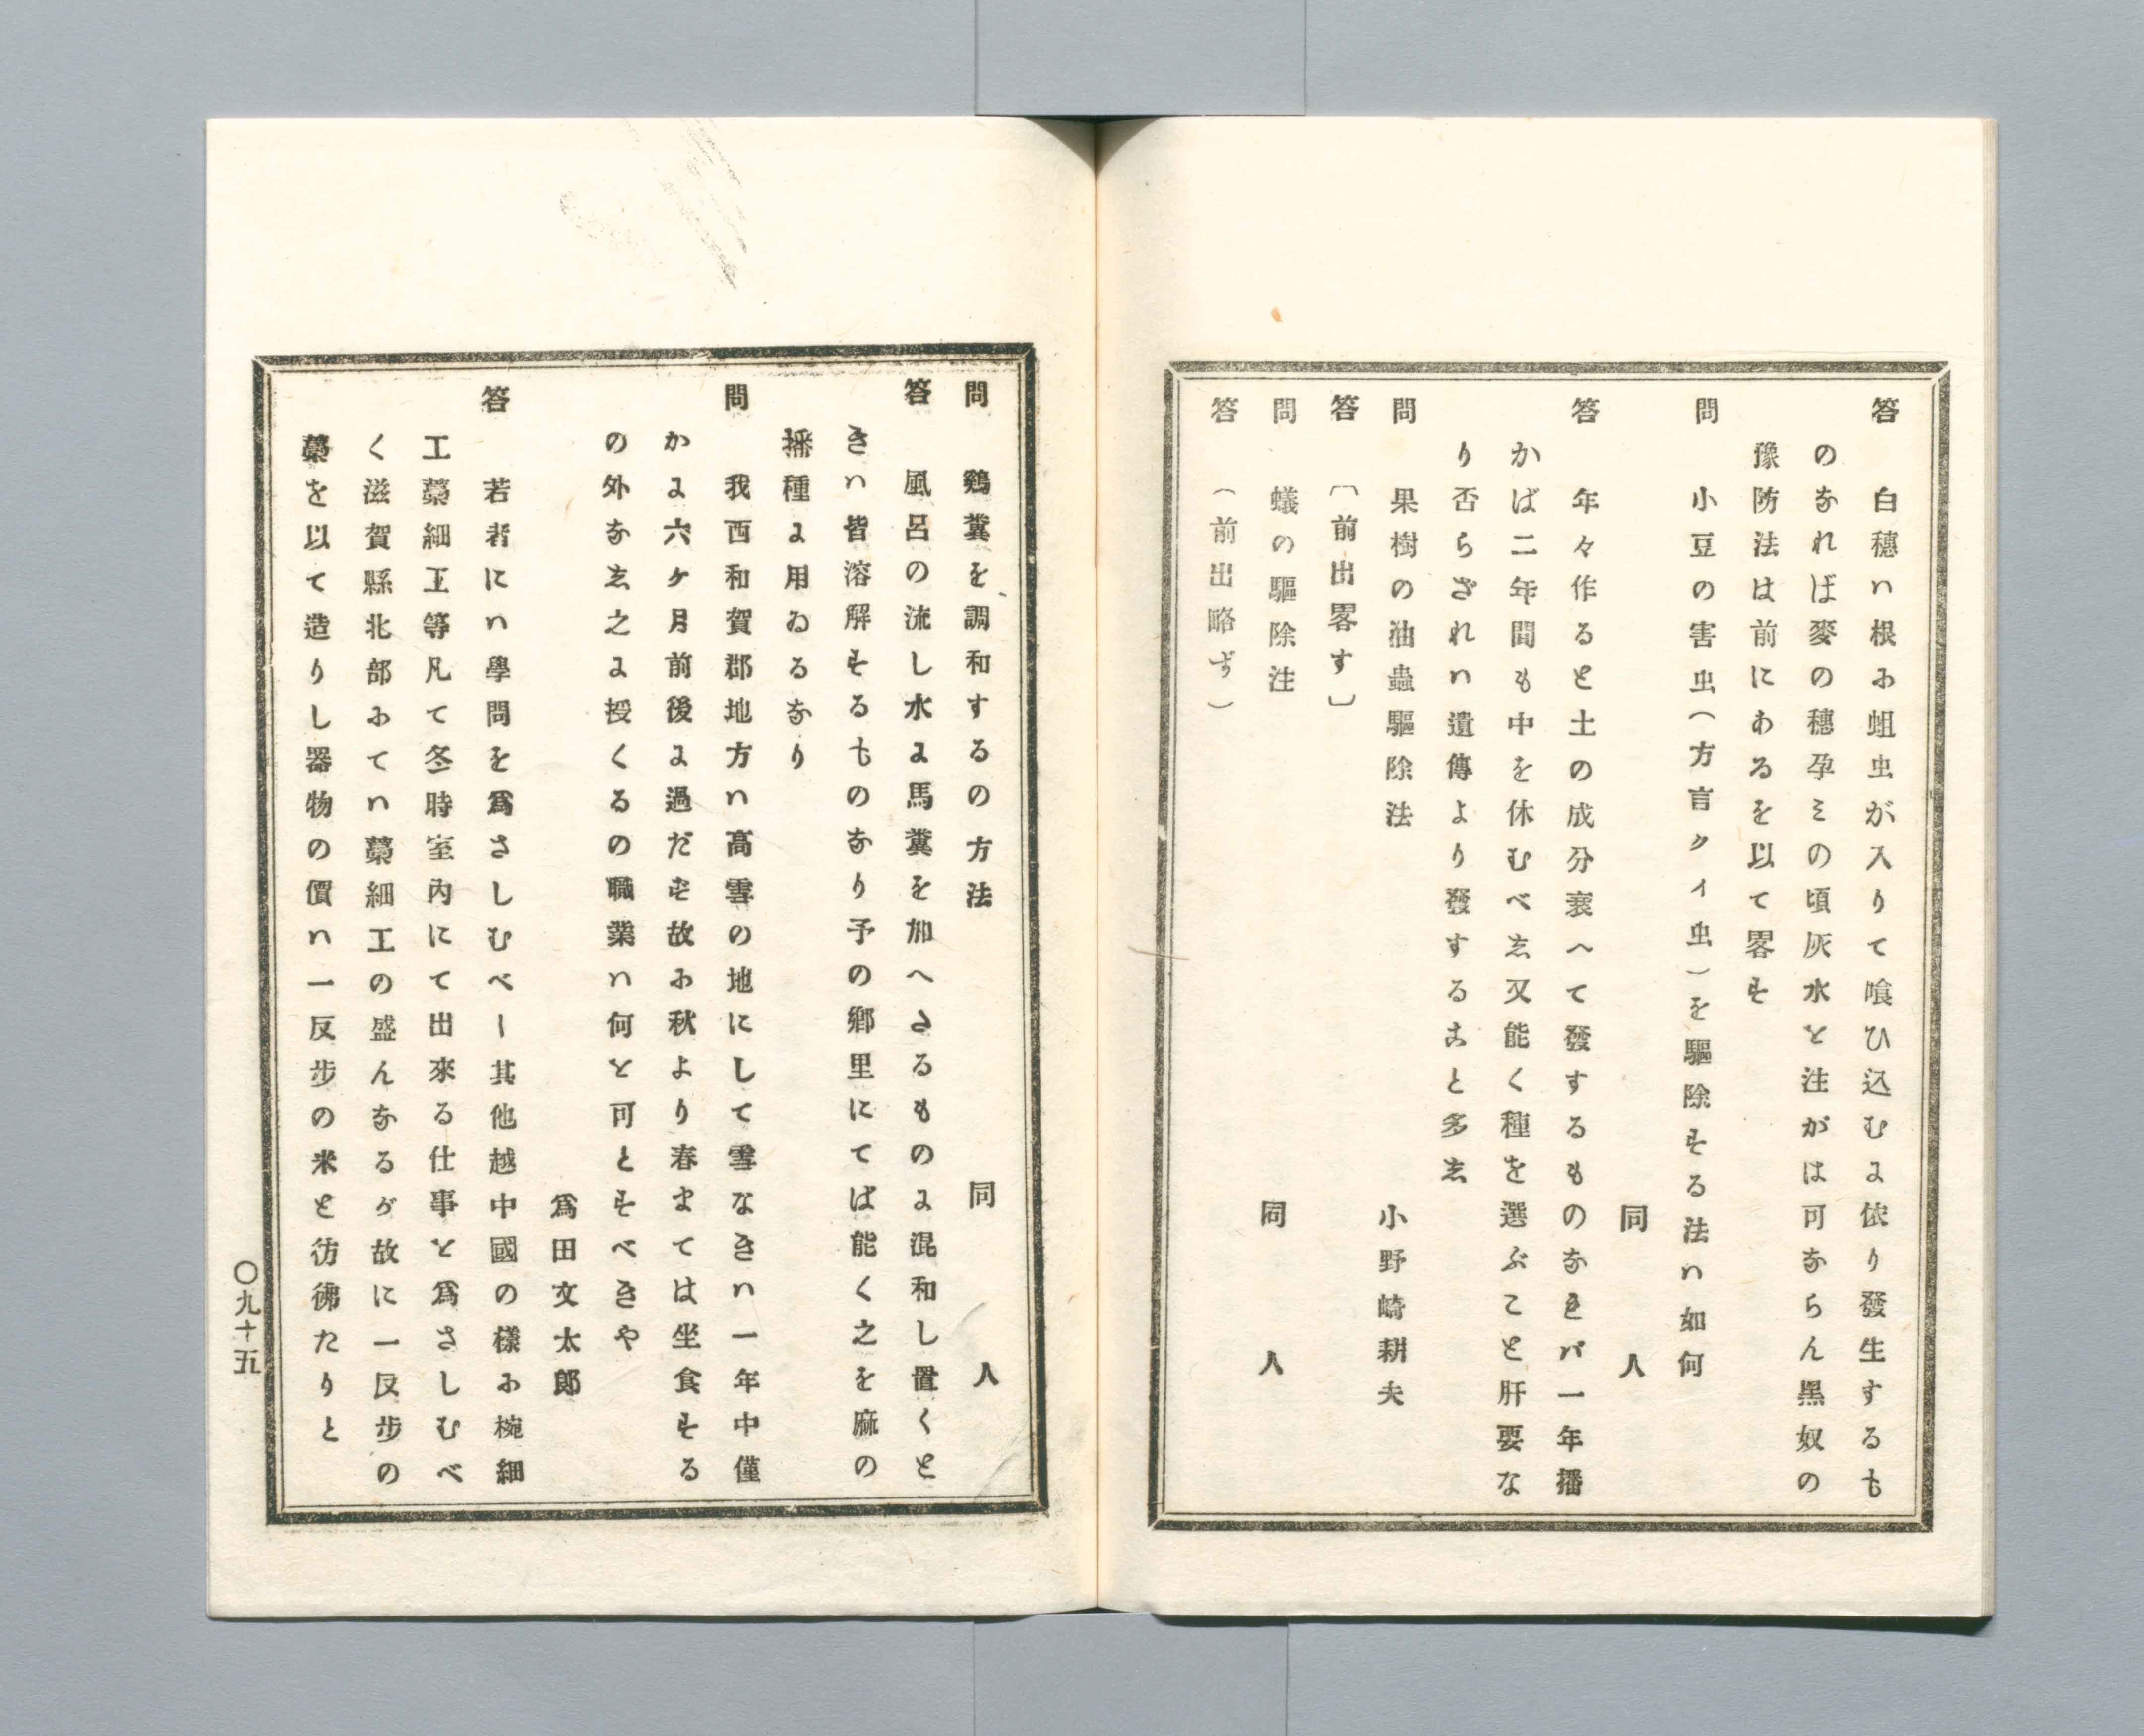 答　白穗ハ根に蛆虫が入りて喰ひ込むに依り發生するも
のなれば麥の穗孕ミの頃灰水を注がは可ならん黑奴の
豫防法は前にあるを以て畧す
問　小豆の害虫（方言クイ虫）を驅除する法ハ如何
同人
答　年々作ると土の成分衰へて發するものなれバ一年播
かば二年間も中を休むべし又能く種を選ぶこと肝要な
り否らざれハ遺傳より發すること多し
問　果樹の油蟲驅除法　小野崎耕夫
答　〔前出畧す〕
問　蟻の驅除注　同人
答　（前出略す）
問　鷄糞を調和するの方法　同人
答　風呂の流し水に馬糞を加へたるものに混和し置くと
きハ皆溶解するものなり予の鄕里にてば能く之を麻の
播種に用ゐるなり
問　我西和賀郡地方ハ高雪の地にして雪なきハ一年中僅
かに六ケ月前後に過だず故に秋より春まては坐食する
の外なし之に授くるの職業ハ何を可とすべきや
爲田文太郎
答　若者にハ學問を爲さしむべし其他越中國の樣に椀細
工藁細工等凡て冬時室內にて出來る仕事を爲さしむべ
く滋賀縣北部にてハ藁細工の盛んなるが故に一反步の
藁を以て造りし器物の價ハ一反步の米と彷彿たりと
〇九十五